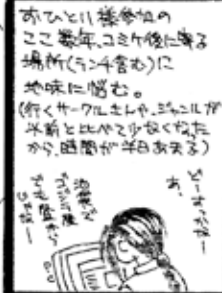 おひとり様参加の
ここ数年、コミケ後に寄る
場所(ランチ含む)に
地味に悩む。
(行くサークルさんや、ジャンルが
以前と比べて少なくなった
から、時間が半日あまる)
どーすっかなー
あ、
池袋で